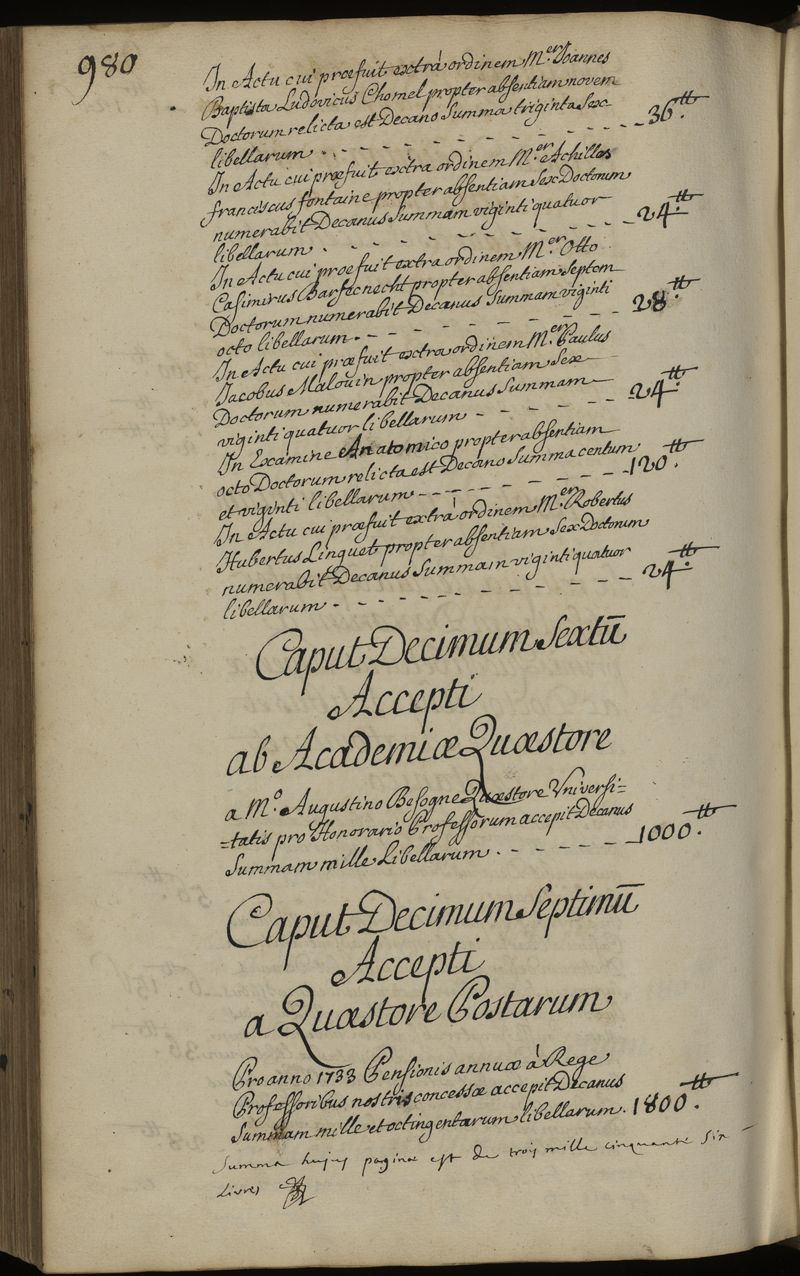 980
In Actu cui præfuit extrà ordinem M.er Joannes
Baptista Ludovicus Chomel propter absentiam novem
Doctorum relicta est Decano Summa triginta Sex
libellarum . - - - - - - - - - - 36.tt
In Actu cui præfuit extra ordinem M.er Achilles
franciscus fontaine propter absentiam Sex Doctorum
numerabit Decanus Summam viginti quatuor
libellarum . - - - - - - - - - - 24.tt
In Actu cui præfuit extra ordinem M.er Otto
Casimirus Barfecnecht propter absentiam Septem
Doctorum numerabit Decanus Summam viginti
octo libellarum . - - - - - - - - 28.tt
In Actu cui præfuit extra ordinem M.er Paulus
Jacobus Malouin propter absentiam Sex
Doctorum numerabit Decanus Summam
viginti quatuor libellarum - - - - - 24.tt
In Examine Anatomico propter absentiam
octo Doctorum relicta est Decano Summa centum
et viginti libellarum - - - - - - - - 120.tt
In Actu cui præfuit extrà ordinem M.er Robertus
Hubertus Linguet propter absentiam Sex Doctorum
numerabit Decanus Summam viginti quatuor
libellarum - - - - - - - - - - 24.tt
Caput Decimum Sextū
Accepti
ab Academiæ Quæstore
a M.o Augustino Besogne Quæstore Universi=
=tatis pro Honorario Professorum accepit Decanus
Summam mille Libellarum . - - - - - 1000.tt
Caput Decimum Septimū
Accepti
a Quæstore Postarum
Pro anno 1733 Pensionis annuæ à Rege
Professoribus nostris concessæ accepit Decanus
Summam mille et octingentarum libellarum. 1800.tt
Summa hujus paginæ est de trois mille cinquante six
Livres